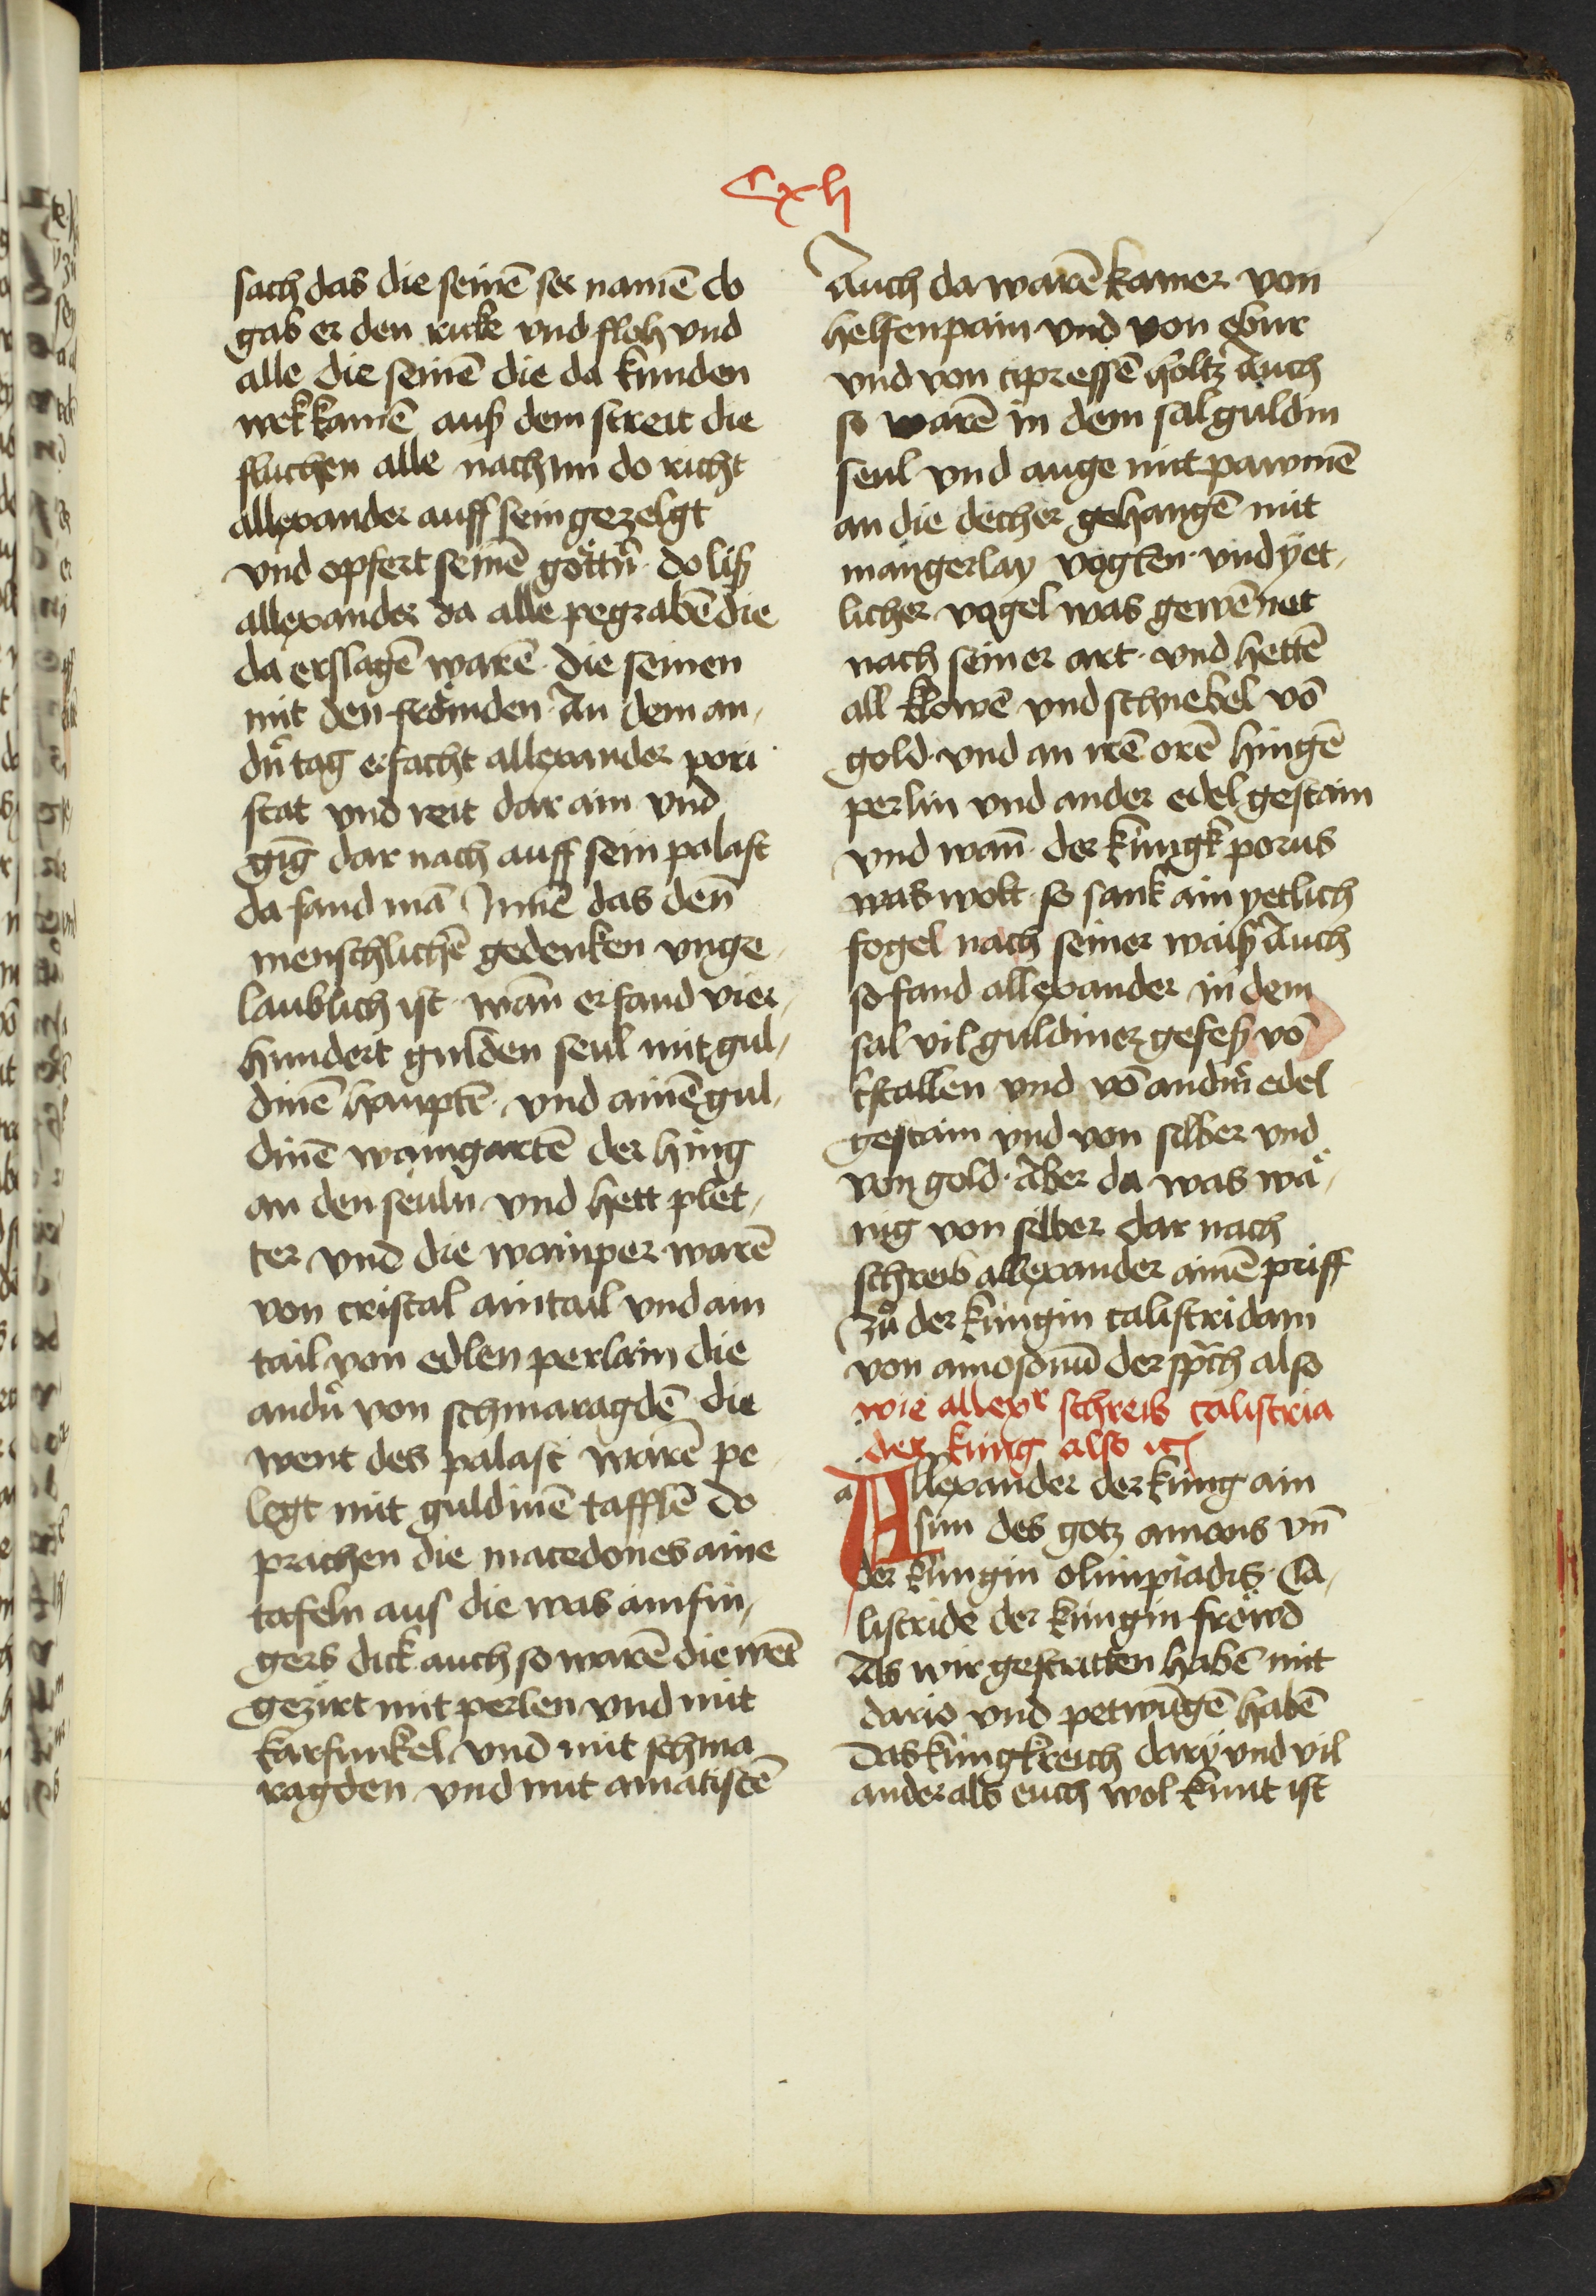 Cxlj
sach das die seinē ser namē do
gab er den rucke vnd floh vnd
alle die seinē die da kunden
wek kamē auß dem streit die
fluchen alle nach im do richt
allexander auff sein gezelgt
vnd opfert seinē göttn̄ · do liß
allexander da alle pegrabē die
da erslagē warē · die seinen
mit den frömden · An dem an,
dn̄ tag erfacht allexander pori
stat vnd reit dar ain vnd
gīg dar nach auff sein palast
da fand mā Jnnē das den̄
menschlichē gedenken vnge,
laublich ist · wan̄ er fand vier,
hundert gulden seul mit gul,
dinē haupten · vnd ainē gul,
dinē waingartē der hing
an den seuln vnd hett plet,
ter vnd die wainper warē
von cristal ain tail vnd ain
tail von edlen perlain die
andn̄ von schmaragdē die
went des palast warē pe
legt mit guldinē tafflē do
prachen die macedones aine
tafeln aus die was ainsfin,
gers dick auch so warē die wēt
gezirt mit perlen vnd mit
karfunkel vnd mit schma
ragden vnd mit amatistē
Auch da warē kamer von
helfenpain vnd von ebur
vnd von cipressē holtz Auch
so warē in dem sal guldin
seul vnd auge mit pawmē
an die decher gehangē mit
mangerlay vogken · vnd yet,
licher vogel was gewēnet
nach seiner art · vnd hettē
all klowē vnd schnebel vō
gold · vnd an irē orē hingē
perlin vnd ander edel gestain
vnd wan̄ · der kungk porus
was wolt · so sank ain yetlich
fogel nach seiner waiß Auch
so fand allexander in dem
sal vil guldiner gefeß vō
kstallen vnd vō andn̄ edel
gestain vnd von silber vnd
von gold · Aber da was wä,
nig von silber dar nach
schreib allexander ainē priff
zů der kungin calistridam
von amosonū der sp̄ch also
wie allexr schreib calistria
der kung also etc
a Allexander der kung ain
sun des gotz amons vn̄
der kungin olimpiadis · Ca,
listride der kungin fröwd
Als wir gestritten habē mit
dario vnd petwūgē habē
das kungkreich darÿ vnd vil
ander als euch wol kunt ist